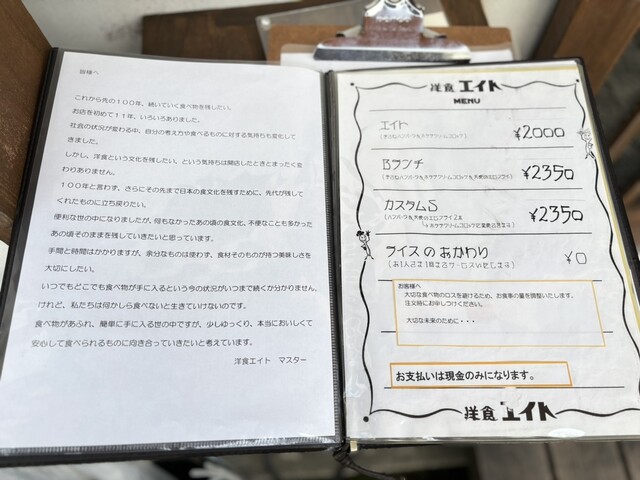 皆様へ
これから先の100年、続いていく食べ物を残したい。
お店を初めて11年、いろいろありました。
社会の状況が変わる中、自分の考え方や食べるものに対する気持ちも変化して
きました。
しかし、洋食という文化を残したい、という気持ちは開店したときとまったく変
わりありません。
100年と言わず、さらにその先まで日本の食文化を残すために、先代が残して
くれたものに立ち戻りたい。
便利な世の中になりましたが、何もなかったあの頃の食文化、不便なことも多かった
あの頃そのままを残していきたいと思っています。
手間と時間はかかりますが、余分なものは使わず、食材そのものが持つ美味しさを
大切にしたい。
いつでもどこでも食べ物が手に入るという今の状況がいつまで続くか分かりません。
けれど、私たちは何かしら食べないと生きていけないのです。
食べ物があふれ、簡単に手に入る世の中ですが、少しゆっくり、本当においしくて
安心して食べられるものに向き合っていきたいと考えています。
洋食エイト マスター
洋食 エイト
MENU
エイト
¥2000
Bランチ
¥2350
カスタムS
¥2350
ライスのおかわり
¥0
お客様へ
大切な食べ物のロスを避けるため、お食事の量を調整いたします。
注文時にお申しつけください。
大切な未来のために・・・
お支払いは現金のみになります。
洋食 エイト